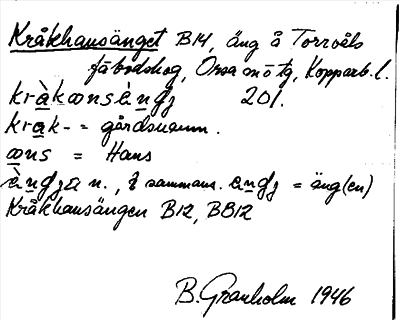 Kråkhansänget B14, äng å Torrvåls
fäbodskog, Orsa sn ö tg, Kopparb. l.
kràkωnsàngʒ 201.
krak- = gårdsnamn.
ωns = Hans
àngʒa n., i sammans. angʒ = äng(en)
Kråkhansängen B12, BB12
B. Granholm 1946